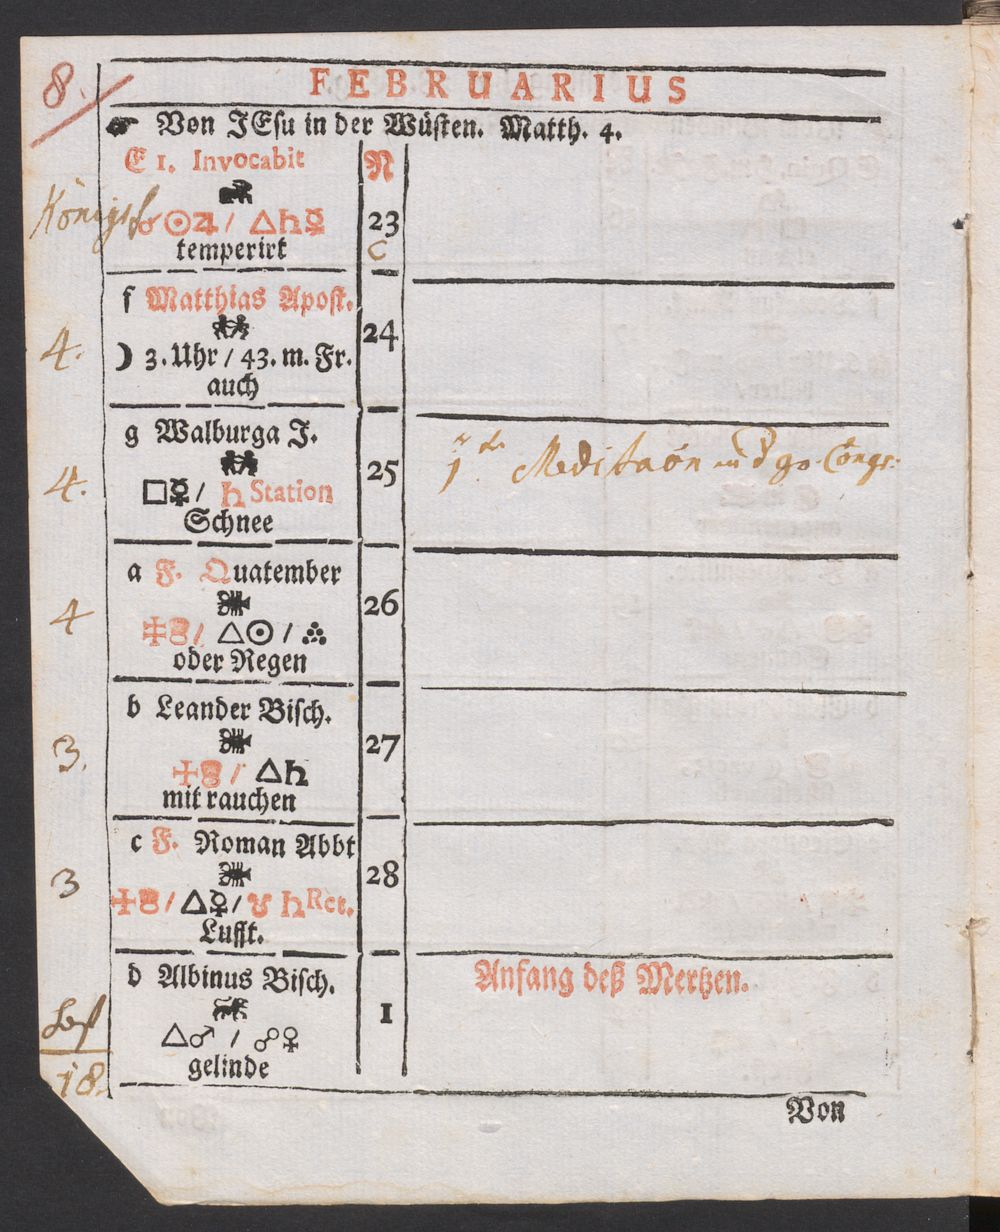 8.
FEBRUARIUS
☛ Von JEsu in der Wüsten. Matth. 4.
E 1. Invocabit
N
☌☉♃/ △♄☿
23
temperirt
C
f Matthias Apost.
4.
24
☽ 3. Uhr / 43. m. Fr.
auch
g Walburga J.
4.
25
1. Meditaôn
□☿/ ♄ Station
Schnee
a F. Quatember
4
26
△☉ /
oder Regen
b Leander Bisch.
3.
27
/ △♄
mit rauchen
c F. Roman Abbt
3
28
/ △☿/ ♉ ♄ Ret.
Lufft.
d Albinus Bisch.
Anfang deß Mertzen.
1
△♂ / ☍♀
gelinde
18.
Von